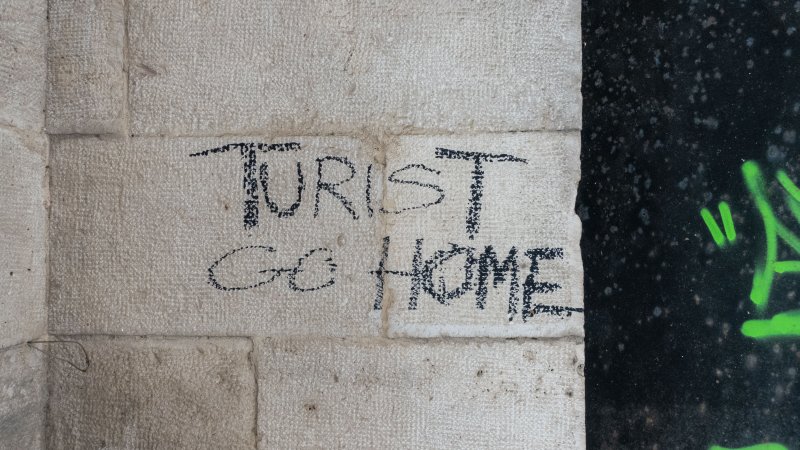 TURIST
GO HOME